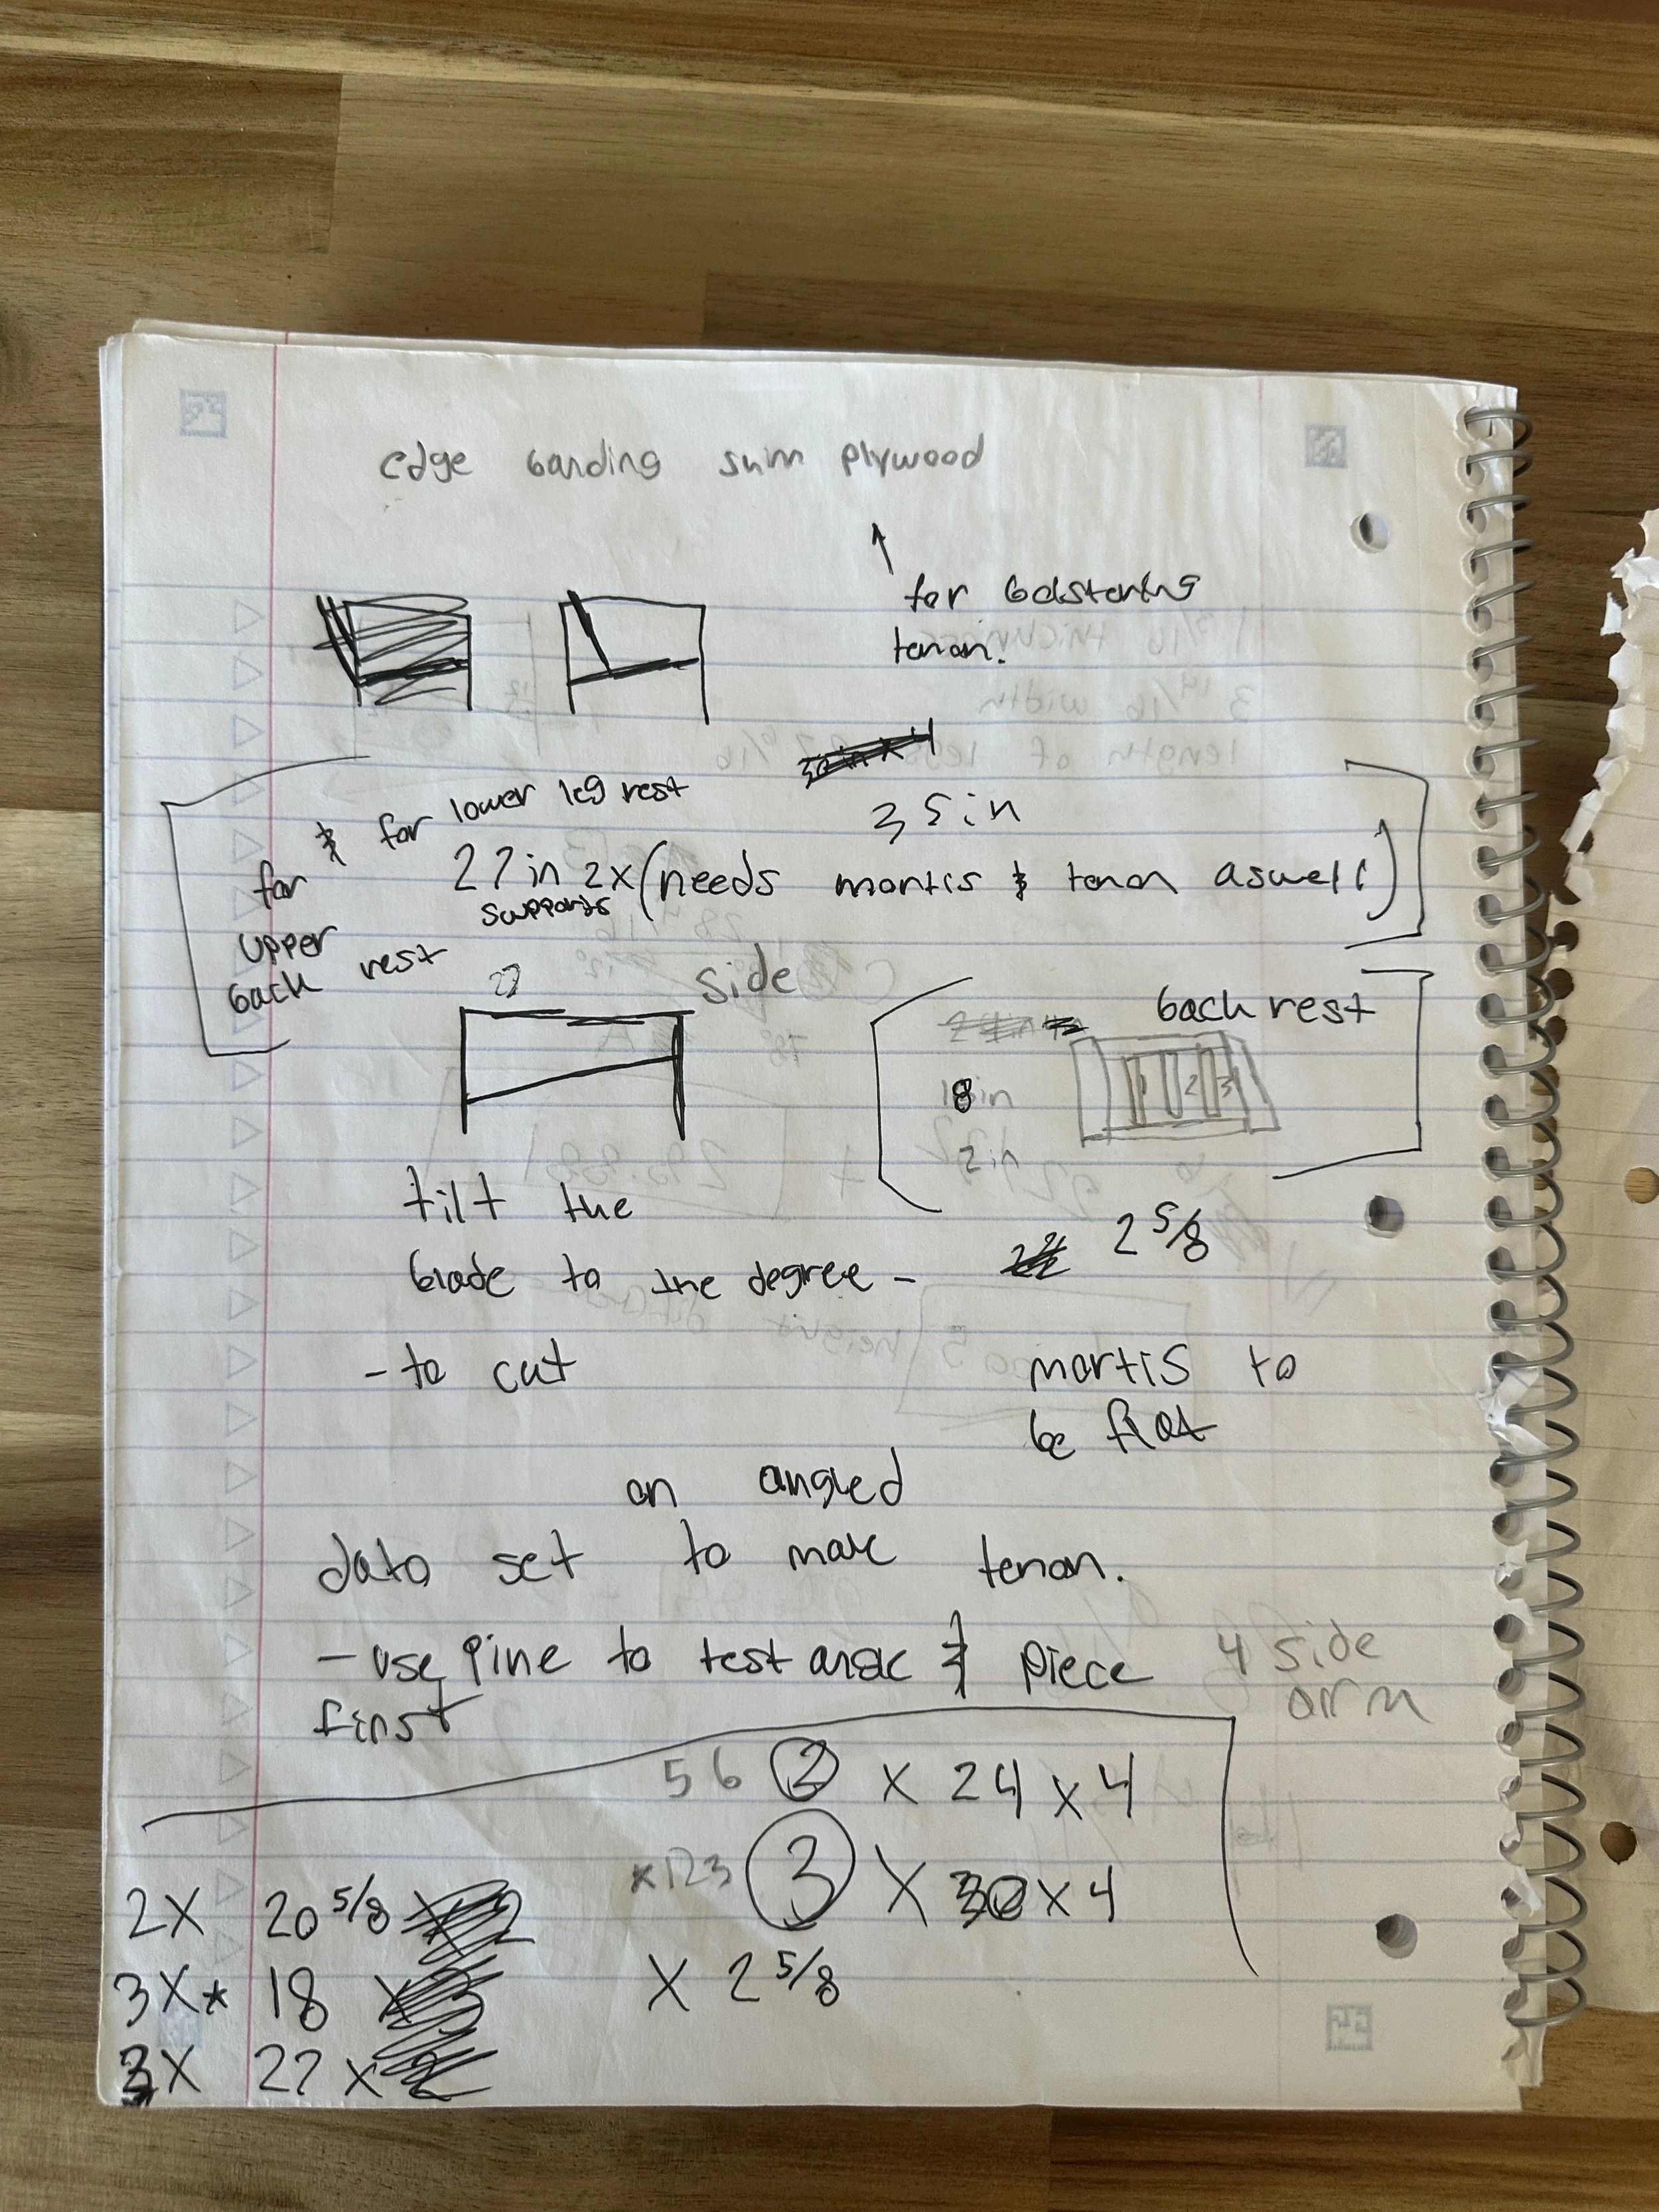 edge banding shim plywood
for bolstering
tenon.
& for lower leg rest
35in
for 27in 2x (needs mortis & tenon aswell)
supports
upper
back rest
27 side
back rest
18in
1 2 3
2in
tilt the
2 5/8
blade to the degree -
- to cut mortis to
be flat
on angled
dato set to make tenon.
- use pine to test & piece
first
4 side
arm
56 2 x 24 x 4
x 123 3 x 30 x 4
2X 20 5/8
x 2 5/8
3X* 18
3X 27 x